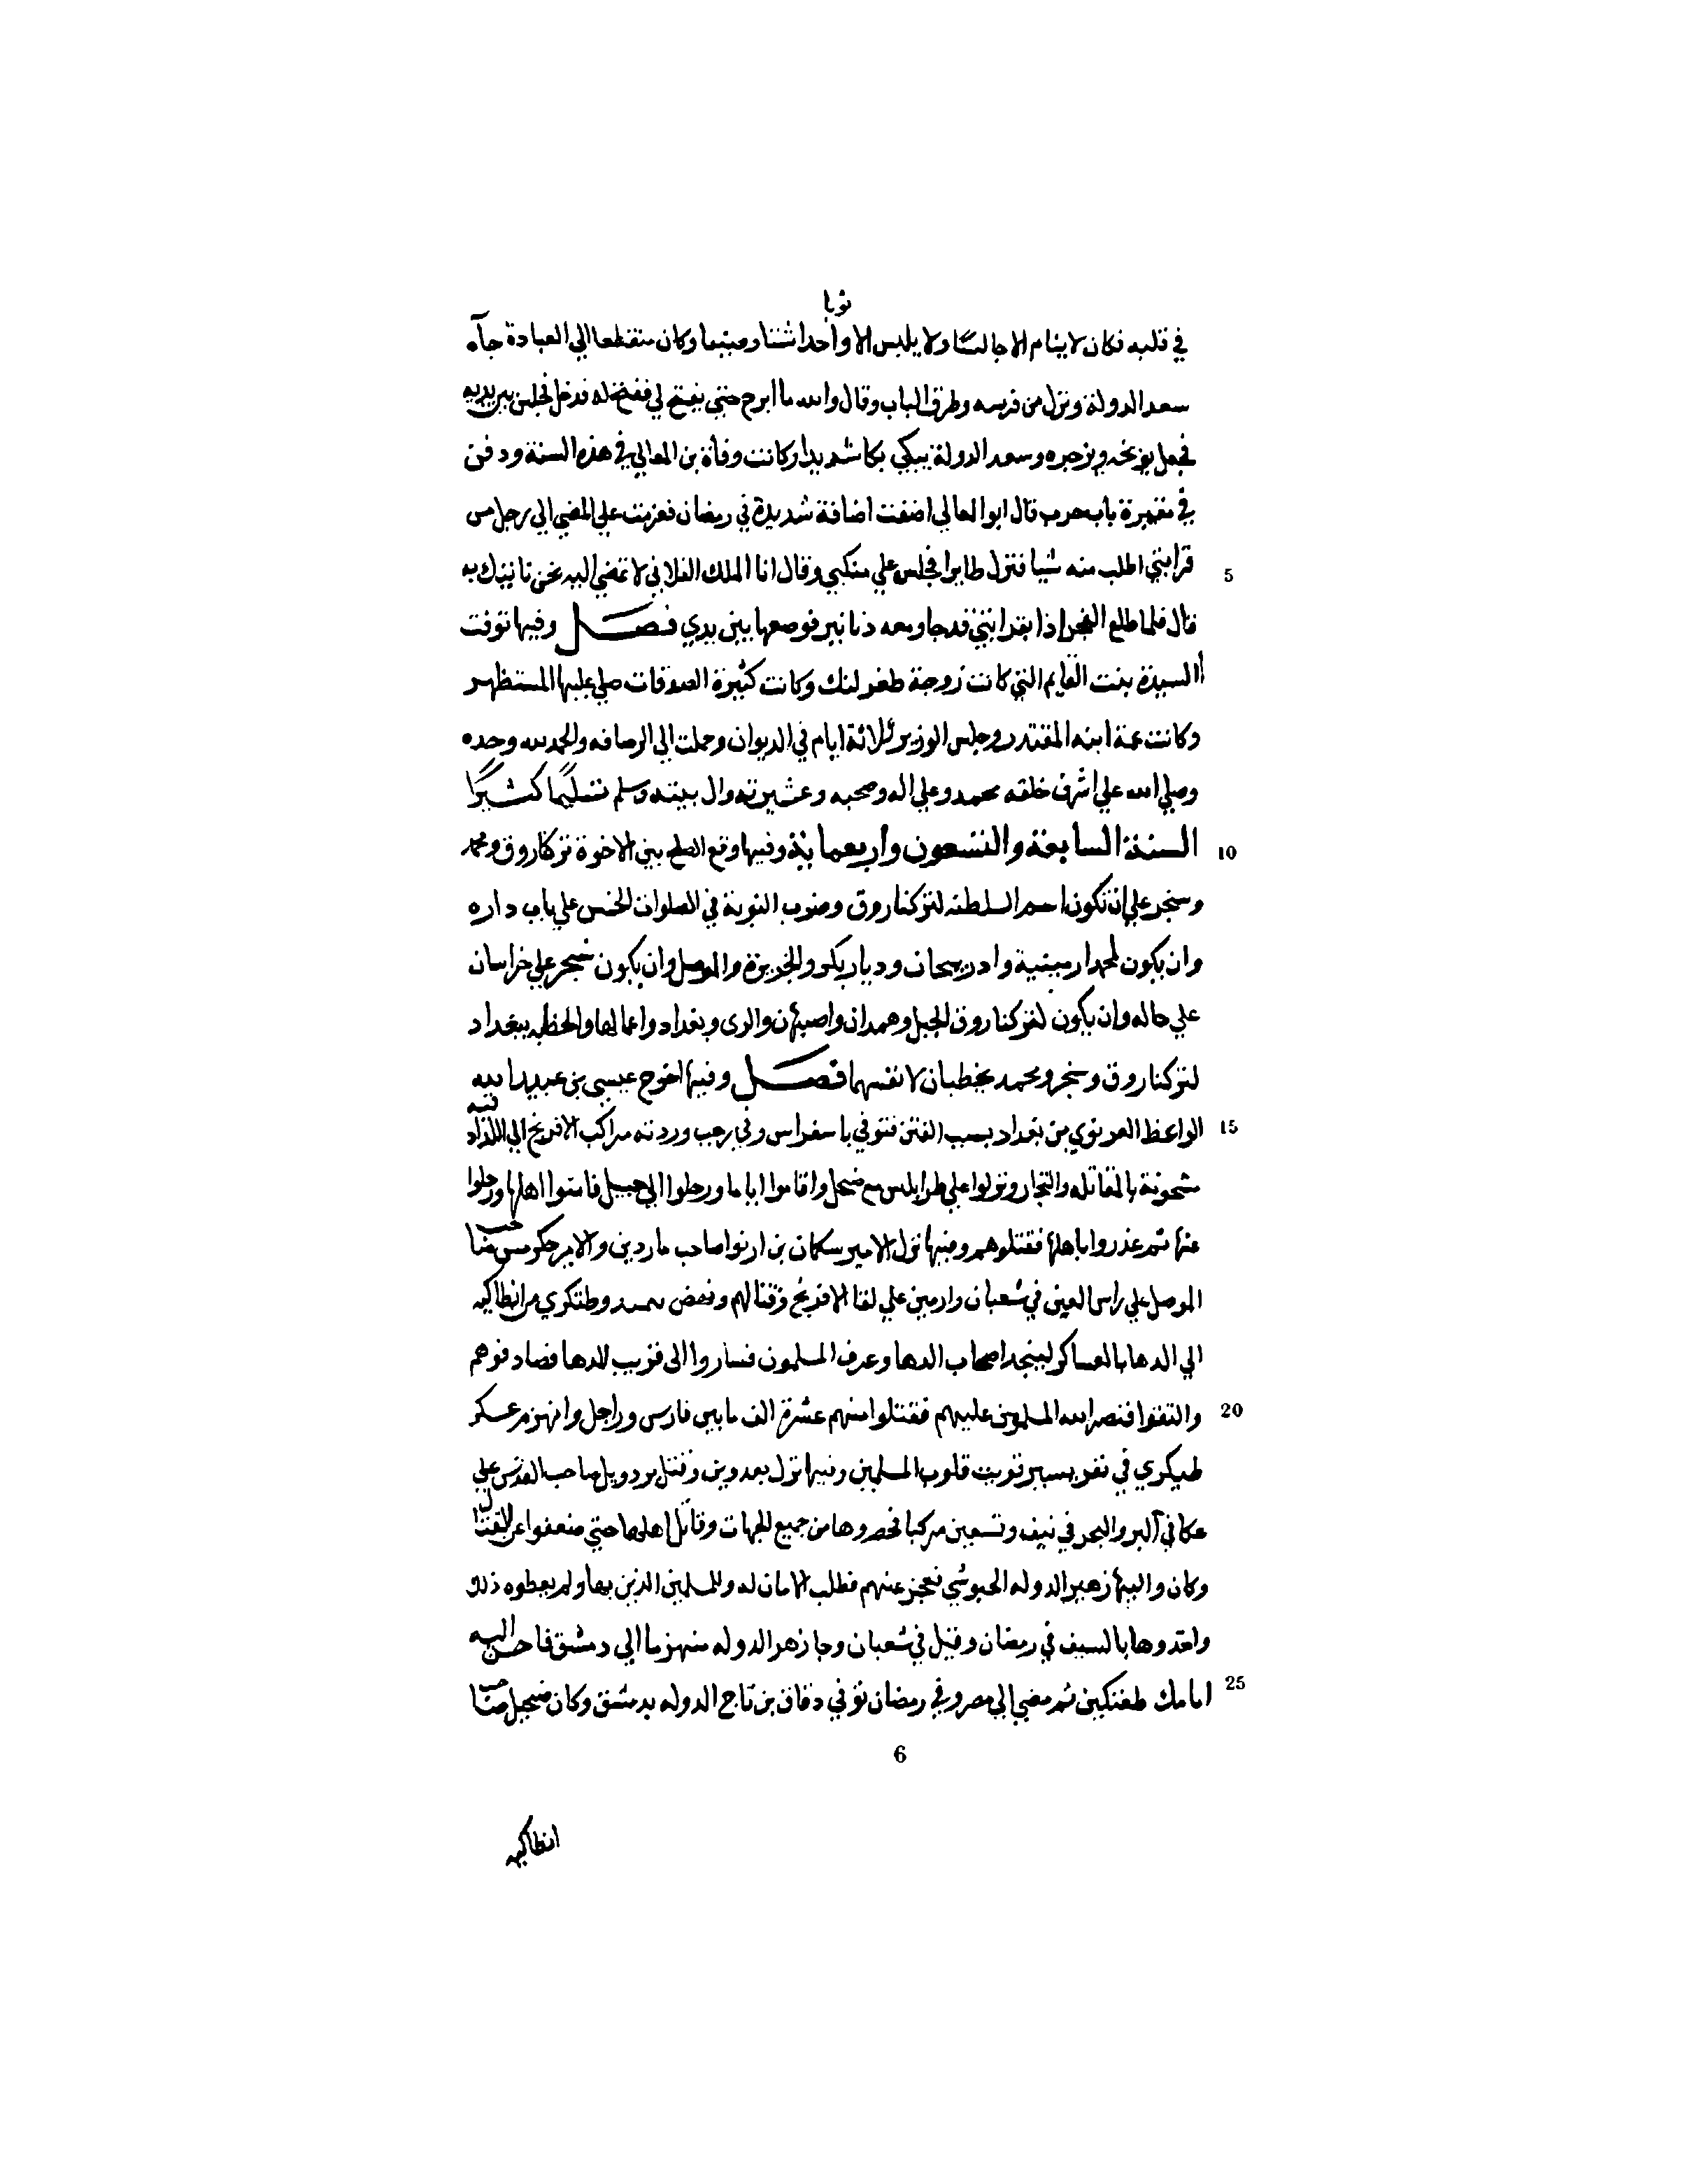 ثوبا
في قلبه فكان لا ينام الا جالسًا ولا يلبس الا واحدا شتا وصيفا وكان منقطعا الي العبادة جآه
سعد الدولة ونزل من فرسه وطرق الباب وقال والله ما ابرح حتي يفتح لي ففتح له فدخل فجلس بين يديه
فجعل يوبخه ويزجره وسعد الدولة يبكي بكا شديدا وكانت وفاة بن المعالي في هذه السنة ودفن
في مقبرة باب حرب قال ابو المعالي اضفت اضافة شديدة في رمضان فعزمت علي المضي الي رجل من
قرابتي اطلب منه شيا فنزل طايرا فجلس علي منكبي وقال انا الملك الفلاني لا تمضي اليه نحن ناتيك به
قال فلما طلع الفجر اذا بقرابتي قد جا ومعه دنانير فوضعها بين يدي فصل وفيها توفت
السيدة بنت القايم التي كانت زوجة طغرلنك وكانت كثيرة الصدقات صلي عليها المستظهر
وكانت عمة ابنه المقتدر وجلس الوزير ثلاثة ايام في الديوان وحملت الي الرصافه والحمد لله وحده
وصلي الله علي اشرف خلقه محمد وعلي اله وصحبه وعشيرته وال بيته وسلم تسليمًا كثيرًا
السنة السابعة والتسعون واربعماية وفيها وقع الصلح بين الاخوة تركناروق ومحمد
وسنجر علي ان تكون اسم السلطنه لتركناروق وضرب النوبة في الصلوات الخمس علي باب داره
وان يكون لمحمد ارمينية وادربيجان وديار بكر والجزيرة والموصل وان يكون سنجر علي خراسان
علي حاله وان يكون لتركناروق الجبل وهمدان واصبهان والرى وبغداد واعمالها والخطبه ببغداد
لتركناروق وسنجر ومحمد يخطبان لانفسهما فصل وفيها اخرج عيسي بن عبد الله
الواعظ الغرنوي من بغداد بسبب الفتن فتوفي باسفراس وفي رجب وردته مراكب الافرنج الي اللاذقيه
مشحونة بالمقاتله والتجار ونزلوا علي طرابلس مع صنجل واقاموا اياما ورحلوا الي جبيل فامنوا اهلها ودخلوا
عنها ثم غدروا باهلها فقتلوهم وفيها نزل الامير سكمان بن ارتوا صاحب ماردين والامير جكرمس صاحب
الموصل علي راس العين في شعبان وارمين علي لقا الافرنج وقتالهم ونهض سمند وطنكري من انطاكيه
الي الدها بالعساكر لينجد اصحاب الدها وعرف المسلمون فساروا الى قريب للدها فصادفوهم
والتقوا فنصر الله المسلمين عليهم فقتلوا منهم عشرة الف ما بين فارس وراجل وانهزم عسكر
طنكري في نفر يسير قويت قلوب المسلمين وفيها نزل بغدوين وقتل بردويل صاحب القدس علي
عكا في البر والبحر في نيف وتسعين مركبا فحصروها من جميع الجهات وقاتل اهلها حتي ضعفوا عن القتال
وكان واليها زهير الدوله الحبوشي فعجز عنهم فطلب الامان له وللمسلمين الذين بها ولم يعطوه ذلك
واخدوها بالسيف في رمضان وقيل في شعبان وجا زهر الدوله منهزما الي دمشق فاحسن اليه
اتابك طغتكين ثم مضي الي مصر وفي رمضان توفي دقاق بن تاج الدوله بدمشق وكان صنجيل صاحب
5
10
15
20
25
6
انطاكيه